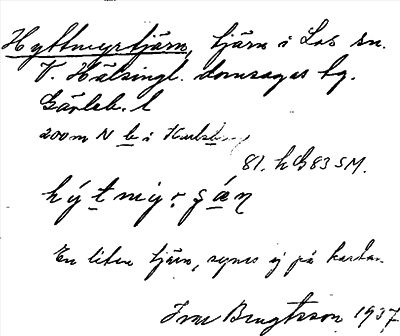 Hyttmyrtjärn, tjärn i Los sn.
V. Hälsingl. domsagas tg.
Gävleb. l
200 m N b i Karlsberg
81. h G 83 SM.
hýtmyrȿän
En liten tjärn, synes ej på kartan.
Bengtsson 1937